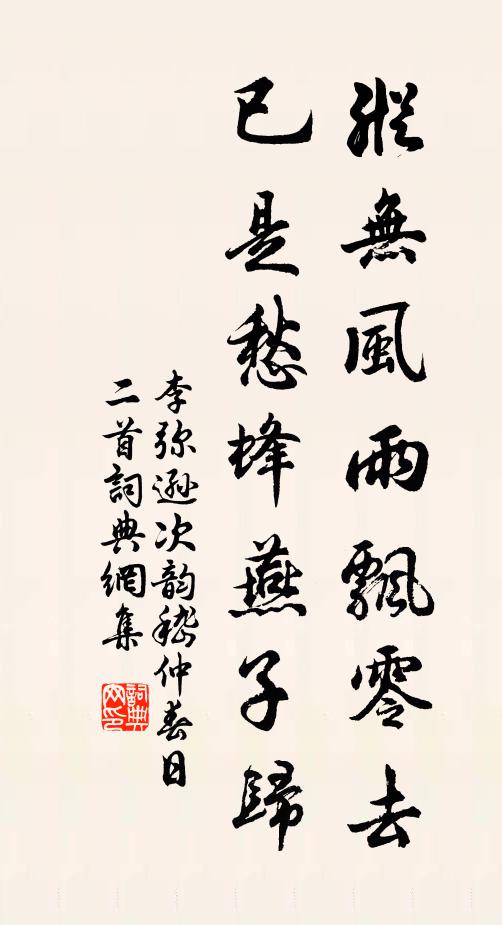 縱無風雨飄零去
已是愁蜂燕子歸
李弥遜次韵嵇仲春日
二首詞典網集
詞典
网印